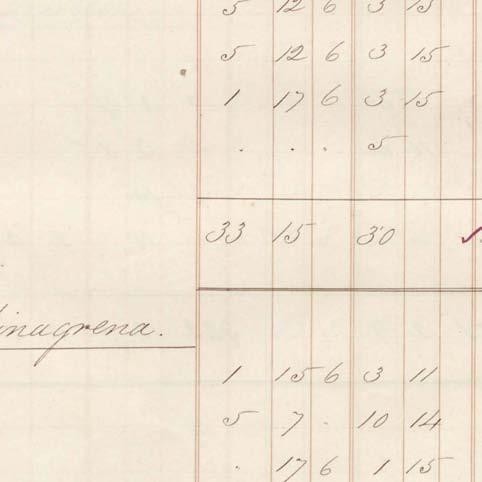 5 12 6 3 15
5 12 6 3 15
1 17 6 3 15
. . . 5
33 15 30
inagrena.
1 15 6 3 11
5 7 . 10 14
. 17 6 1 15